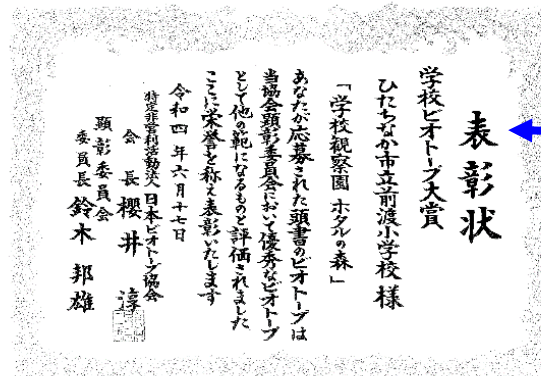 表彰状
学校ビオトープ大賞
ひたちなか市立前渡小学校 様
「学校観察園 ホタルの森」
あなたが応募された頭書のビオトープは
当協会顕彰委員会において優秀なビオトープ
として他の範になるものと評価されました
ここに栄誉を称え表彰いたします
令和四年六月十七日
特定非営利活動法人 日本ビオトープ協会
会長 櫻井 淳
顕彰委員会
委員長 鈴木 邦雄